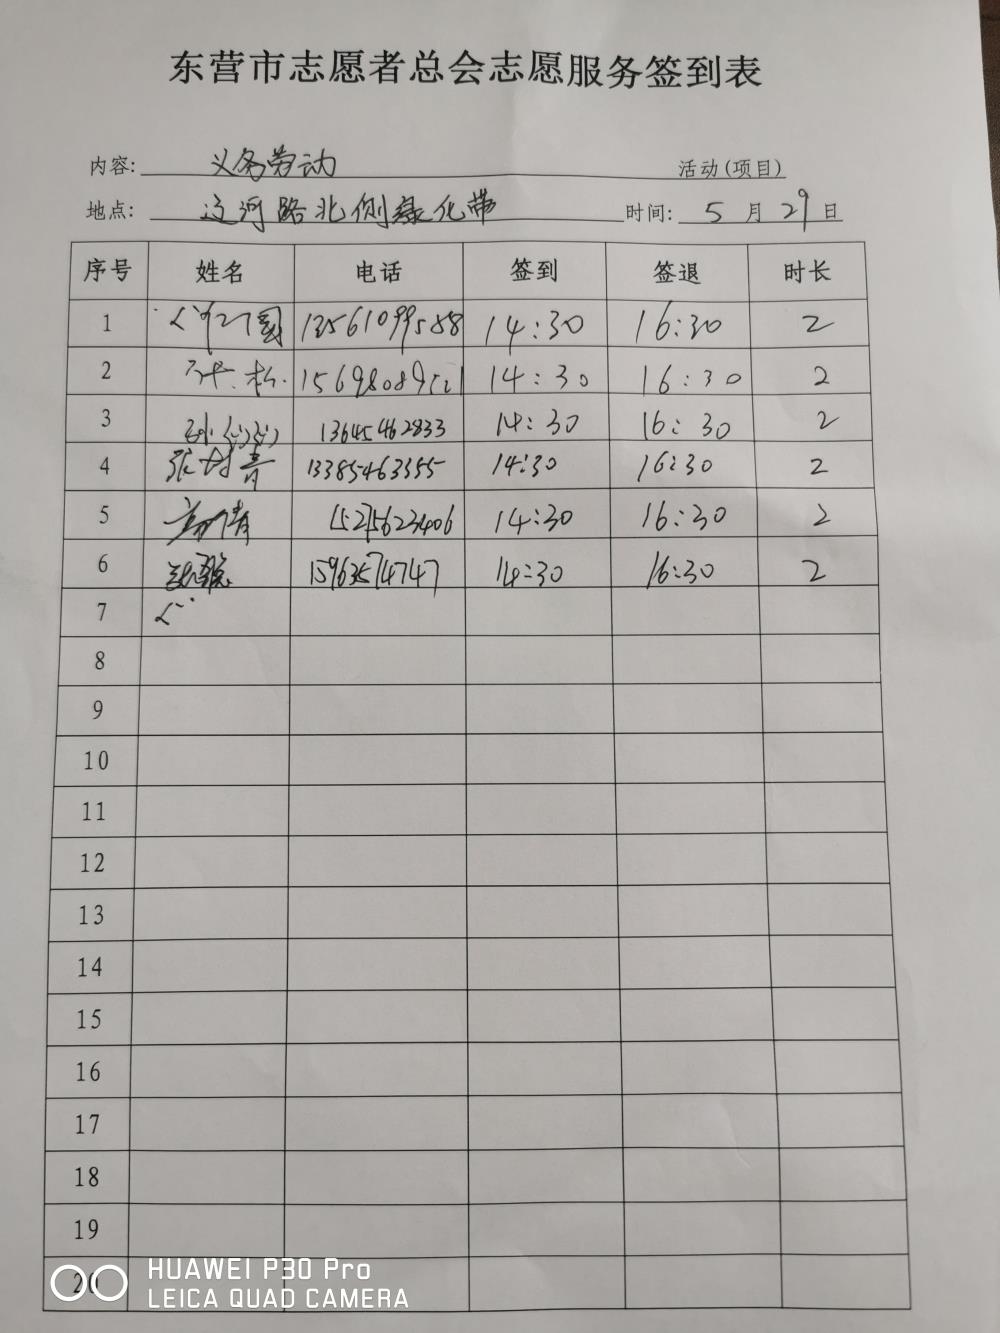 东营市志愿者总会志愿服务签到表
内容: 义务劳动 活动(项目)
地点: 辽河路北侧绿化带 时间: 5 月 29 日
序号 姓名 电话 签到 签退 时长
1 13561099588 14:30 16:30 2
2 14:30 16:30 2
3 13645462833 14:30 16:30 2
4 13385463355 14:30 16:30 2
5 高倩 15275623406 14:30 16:30 2
6 15963574747 14:30 16:30 2
7
8
9
10
11
12
13
14
15
16
17
18
19
20
HUAWEI P30 Pro
LEICA QUAD CAMERA